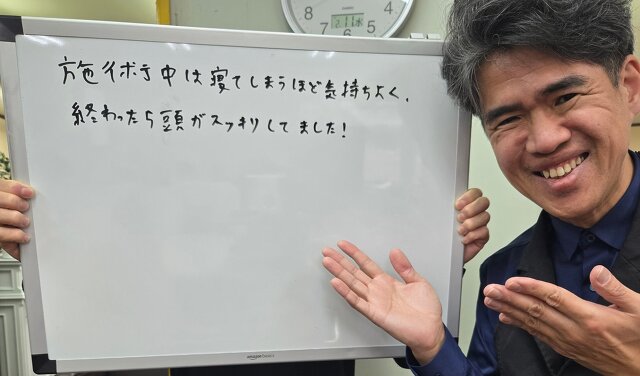 8
9
4
7
6
5
2.11水
施術中は寝てしまうほど気持ちよく、
終わったら頭がスッキリしてました!
amazonbasics